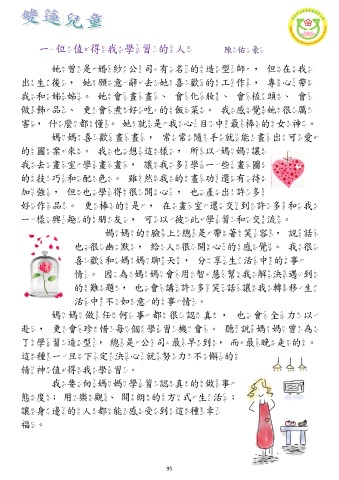 雙蓮兒童
一位值得我學習的人 陳佑豪
她曾是婚紗公司有名的造型師，但在我
出生後，她願意辭去她喜歡的工作，專心帶
我和姊姊。她會畫畫、會化妝、會梳頭、會
做飾品、更會煮好吃的飯菜。我感覺她很厲
害，什麼都懂。她就是我心目中最棒的女神。
媽媽喜歡畫畫，常常隨手就能畫出可愛
的圖案來。我也想這樣，所以媽媽讓
我去畫室學畫畫，讓我多學一些畫圖
的技巧和配色。雖然我的畫功還有待
加強，但也學得很開心，也產出許多
好作品。更棒的是，在畫室還交到許多和我
一樣興趣的朋友，可以彼此學習和交流。
媽媽的臉上總是帶著笑容，說話
也很幽默，給人很開心的感覺。我很
喜歡和媽媽聊天，分享生活中的事
情。因為媽媽會用智慧幫我解決遇到
的難題，也會講許多笑話讓我轉移生
活中不如意的事情。
媽媽做任何事都很認真，也會全力以
赴，更會珍惜每個學習機會。聽說媽媽曾為
了學習造型，總是公司最早到，而最晚走的。
這種一旦下定決心就努力不懈的
精神值得我學習。
我要向媽媽學習認真的做事
態度；用樂觀、開朗的方式生活；
讓身邊的人都能感受到這種幸
福。
95